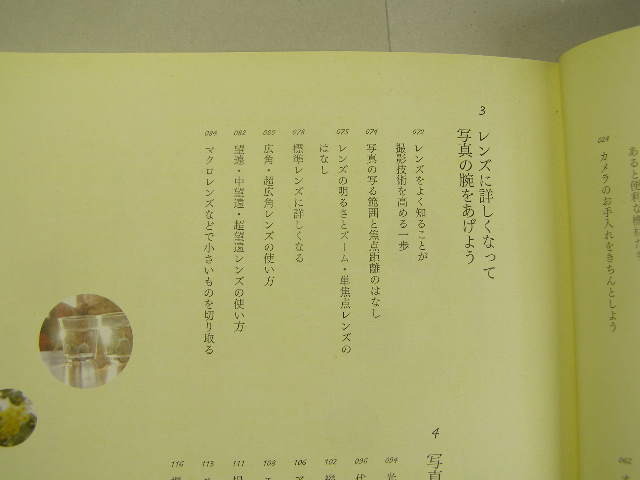 024
カメラのお手入れをきちんとしよう
062
3
レンズに詳しくなって
写真の腕をあげよう
072
レンズをよく知ることが
撮影技術を高める一歩
074
写真の写る範囲と焦点距離のはなし
075
レンズの明るさとズーム・単焦点レンズの
はなし
078
標準レンズに詳しくなる
080
広角・超広角レンズの使い方
082
望遠・中望遠・超望遠レンズの使い方
084
マクロレンズなどで小さいものを切り取る
4
写真
094
096
102
106
108
111
113
116